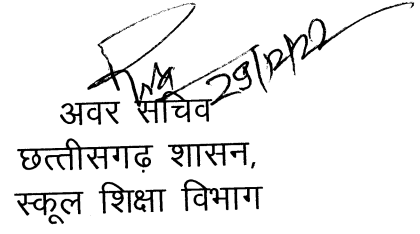 29/12/22
अवर सचिव
छत्तीसगढ़ शासन,
स्कूल शिक्षा विभाग